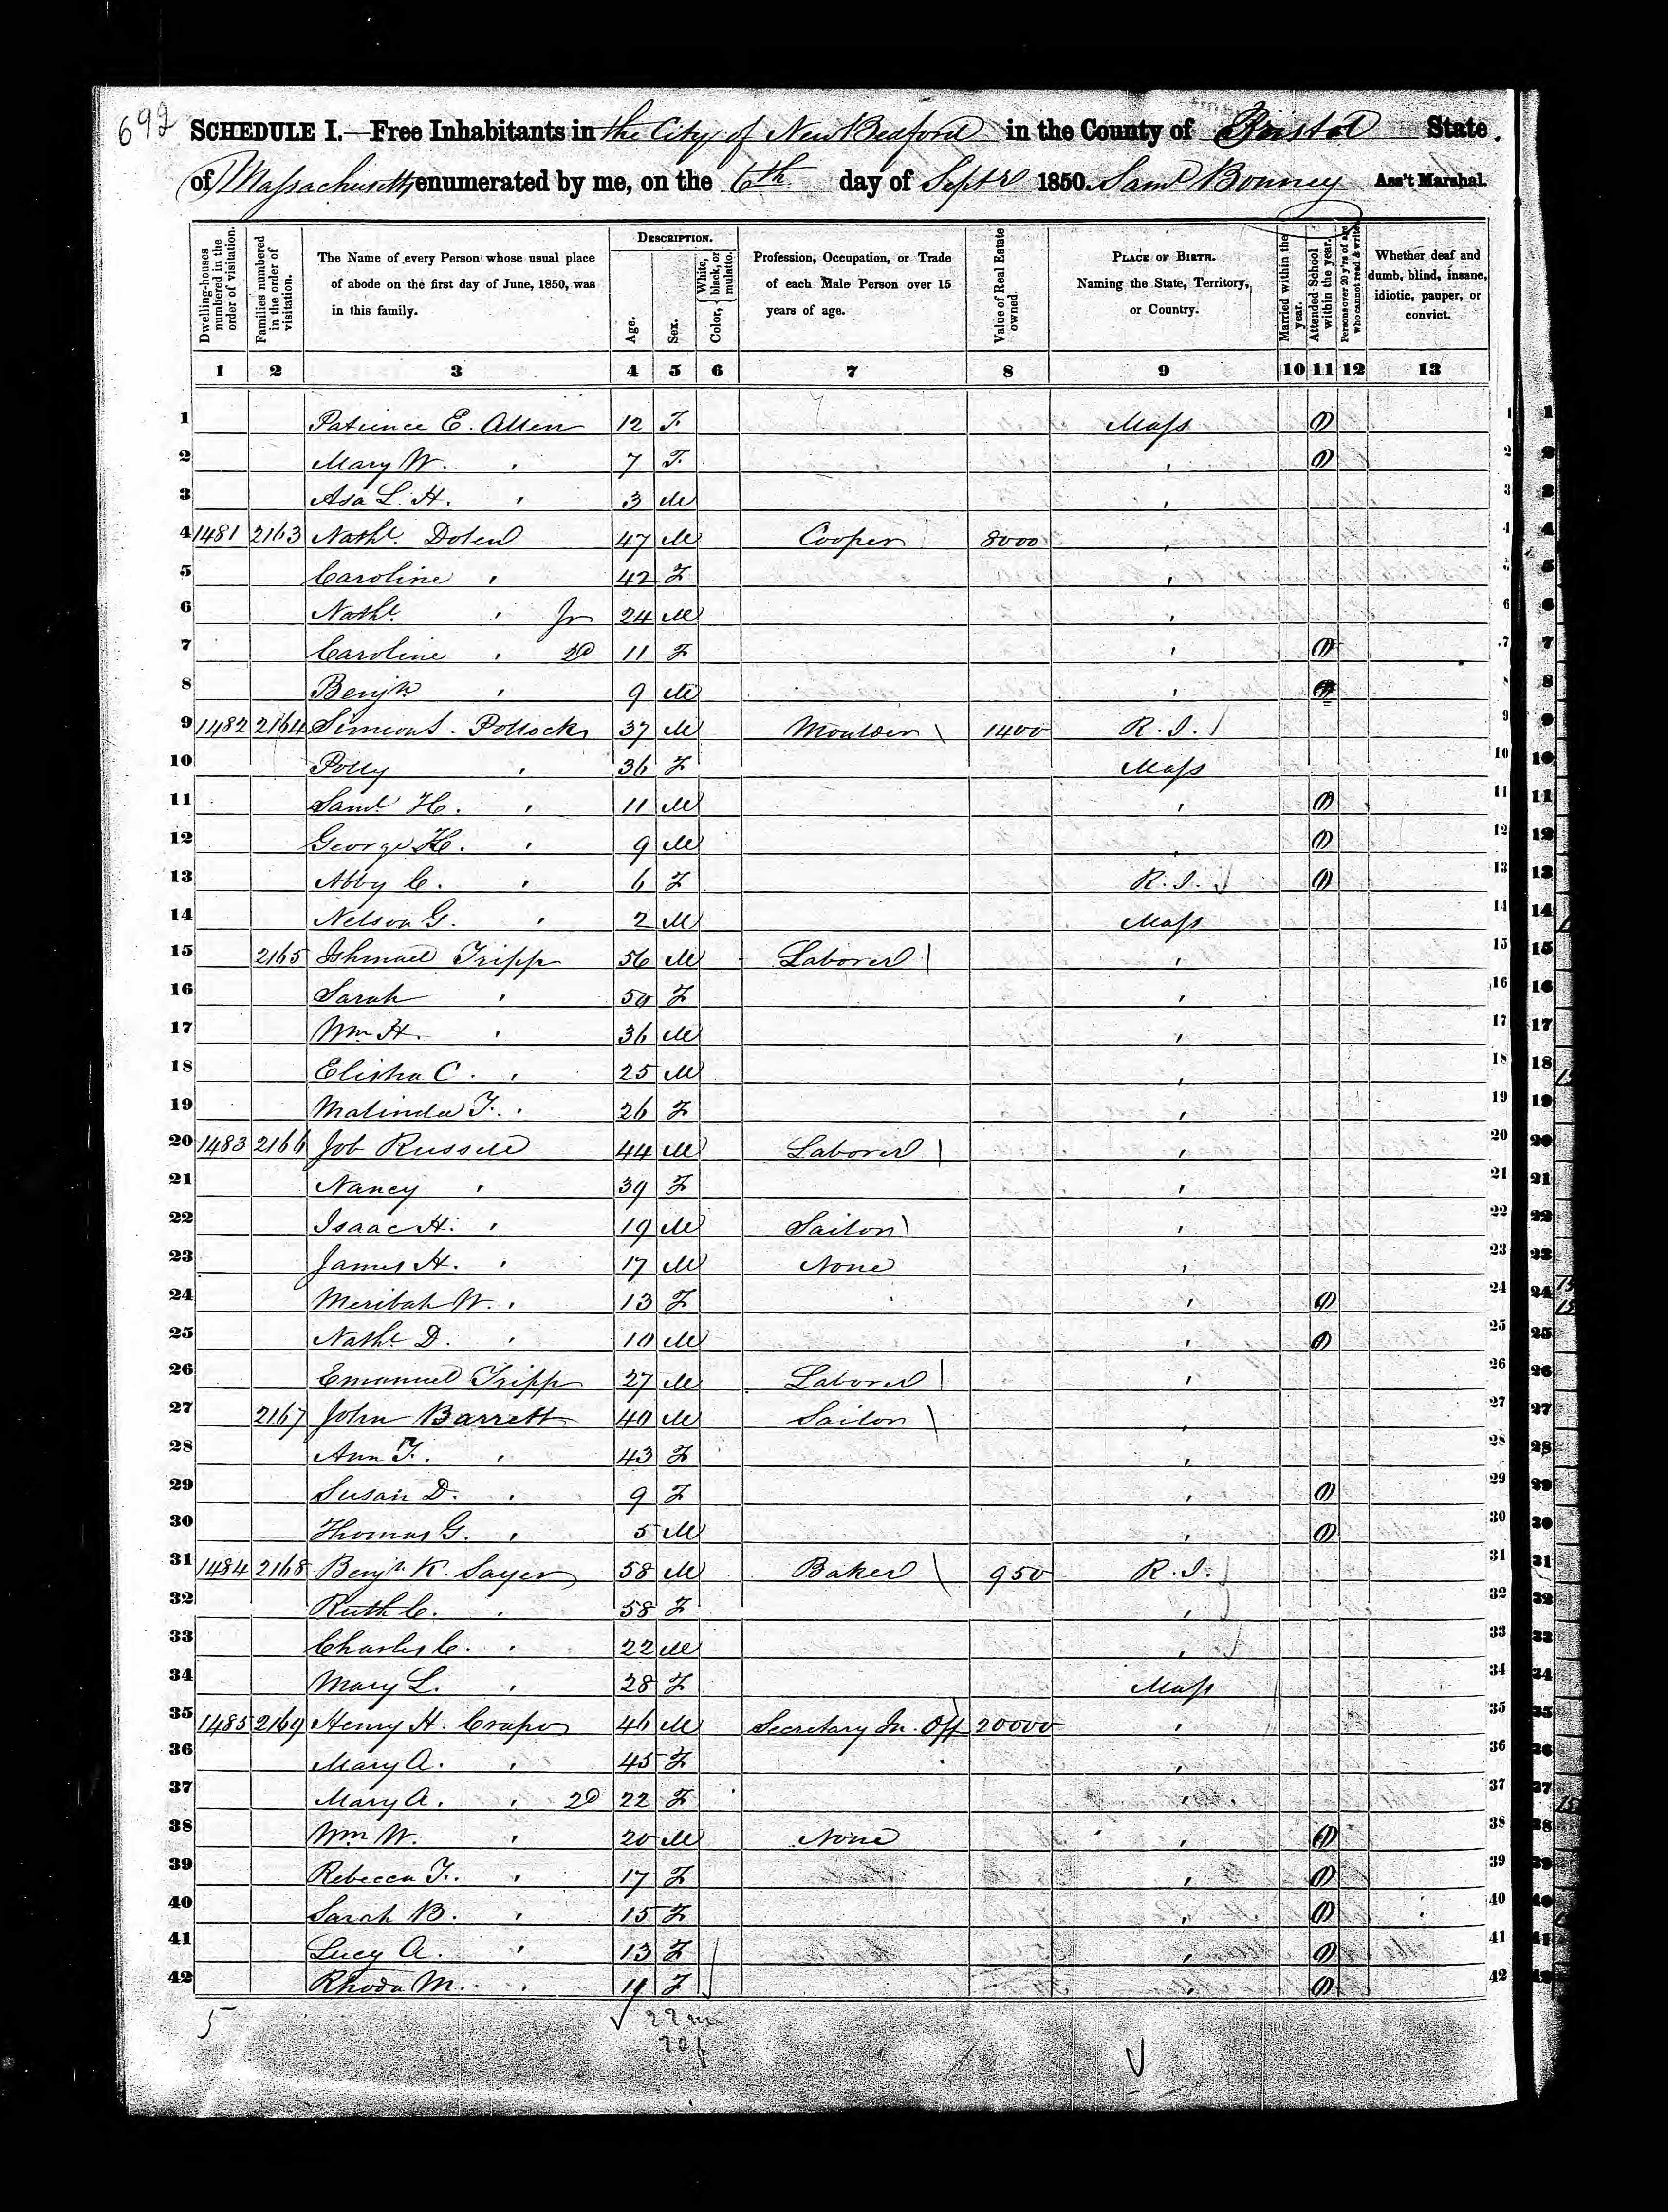 692
SCHEDULE I.—Free Inhabitants in the City of New Bedford in the County of Bristol State
of Massachusetts enumerated by me, on the 6th day of Septr 1850. Saml Bonney Ass't Marshal.
Dwelling-houses numbered in the order of visitation. Families numbered in the order of visitation. The Name of every Person whose usual place of abode on the first day of June, 1850, was in this family. DESCRIPTION. Age. Sex. Color, White, black, or mulatto. Profession, Occupation, or Trade of each Male Person over 15 years of age. Value of Real Estate owned. PLACE OF BIRTH. Naming the State, Territory, or Country. Married within the year. Attended School within the year. Persons over 20 y'rs of age who cannot read & write. Whether deaf and dumb, blind, insane, idiotic, pauper, or convict.
1 2 3 4 5 6 7 8 9 10 11 12 13
1 Patience E. Allen 12 F Mass 1 1
2 Mary W. " 7 F " 1 2
3 Asa L. H. " 3 M " 3
4 1481 2163 Nathl. Dolen 47 M Cooper 8000 " 4
5 Caroline " 42 F " 5
6 Nathl. " Jr 24 M " 6
7 Caroline " 2D 11 F " 1 7
8 Benjn " 9 M " 1 8
9 1482 2164 Simeon S. Pollock 37 M Moulder 1400 R. I. 9
10 Polly " 36 F Mass 10
11 Saml. H. " 11 M " 1 11
12 George H. " 9 M " 1 12
13 Abby C. " 6 F R. I. 1 13
14 Nelson G. " 2 M Mass 14
15 2165 Ishmael Tripp 56 M Laborer " 15
16 Sarah " 50 F " 16
17 Wm H. " 36 M " 17
18 Elisha C. " 25 M " 18
19 Malinda F. " 26 F " 19
20 1483 2166 Job Russell 44 M Laborer " 20
21 Nancy " 39 F " 21
22 Isaac H. " 19 M Sailor " 22
23 James H. " 17 M None " 23
24 Meribah W. " 13 F " 1 24
25 Nathl D. " 10 M " 1 25
26 Emanuel Tripp 27 M Laborer " 26
27 2167 John Barrett 40 M Sailor " 27
28 Ann F. " 43 F " 28
29 Susan D. " 9 F " 1 29
30 Thomas G. " 5 M " 1 30
31 1484 2168 Benjn. K. Sayer 58 M Baker 950 R. I. 31
32 Ruth C. " 58 F " 32
33 Charles C. " 22 M " 33
34 Mary L. " 28 F Mass 34
35 1485 2169 Henry H. Crapo 46 M Secretary In. Off 20000 " 35
36 Mary A. " 45 F " 36
37 Mary A. " 2D 22 F " 37
38 Wm W. " 20 M None " 1 38
39 Rebecca F. " 17 F " 1 39
40 Sarah B. " 15 F " 1 40
41 Lucy A. " 13 F " 1 41
42 Rhoda M. " 11 F " 1 42
5 22 m
20 f